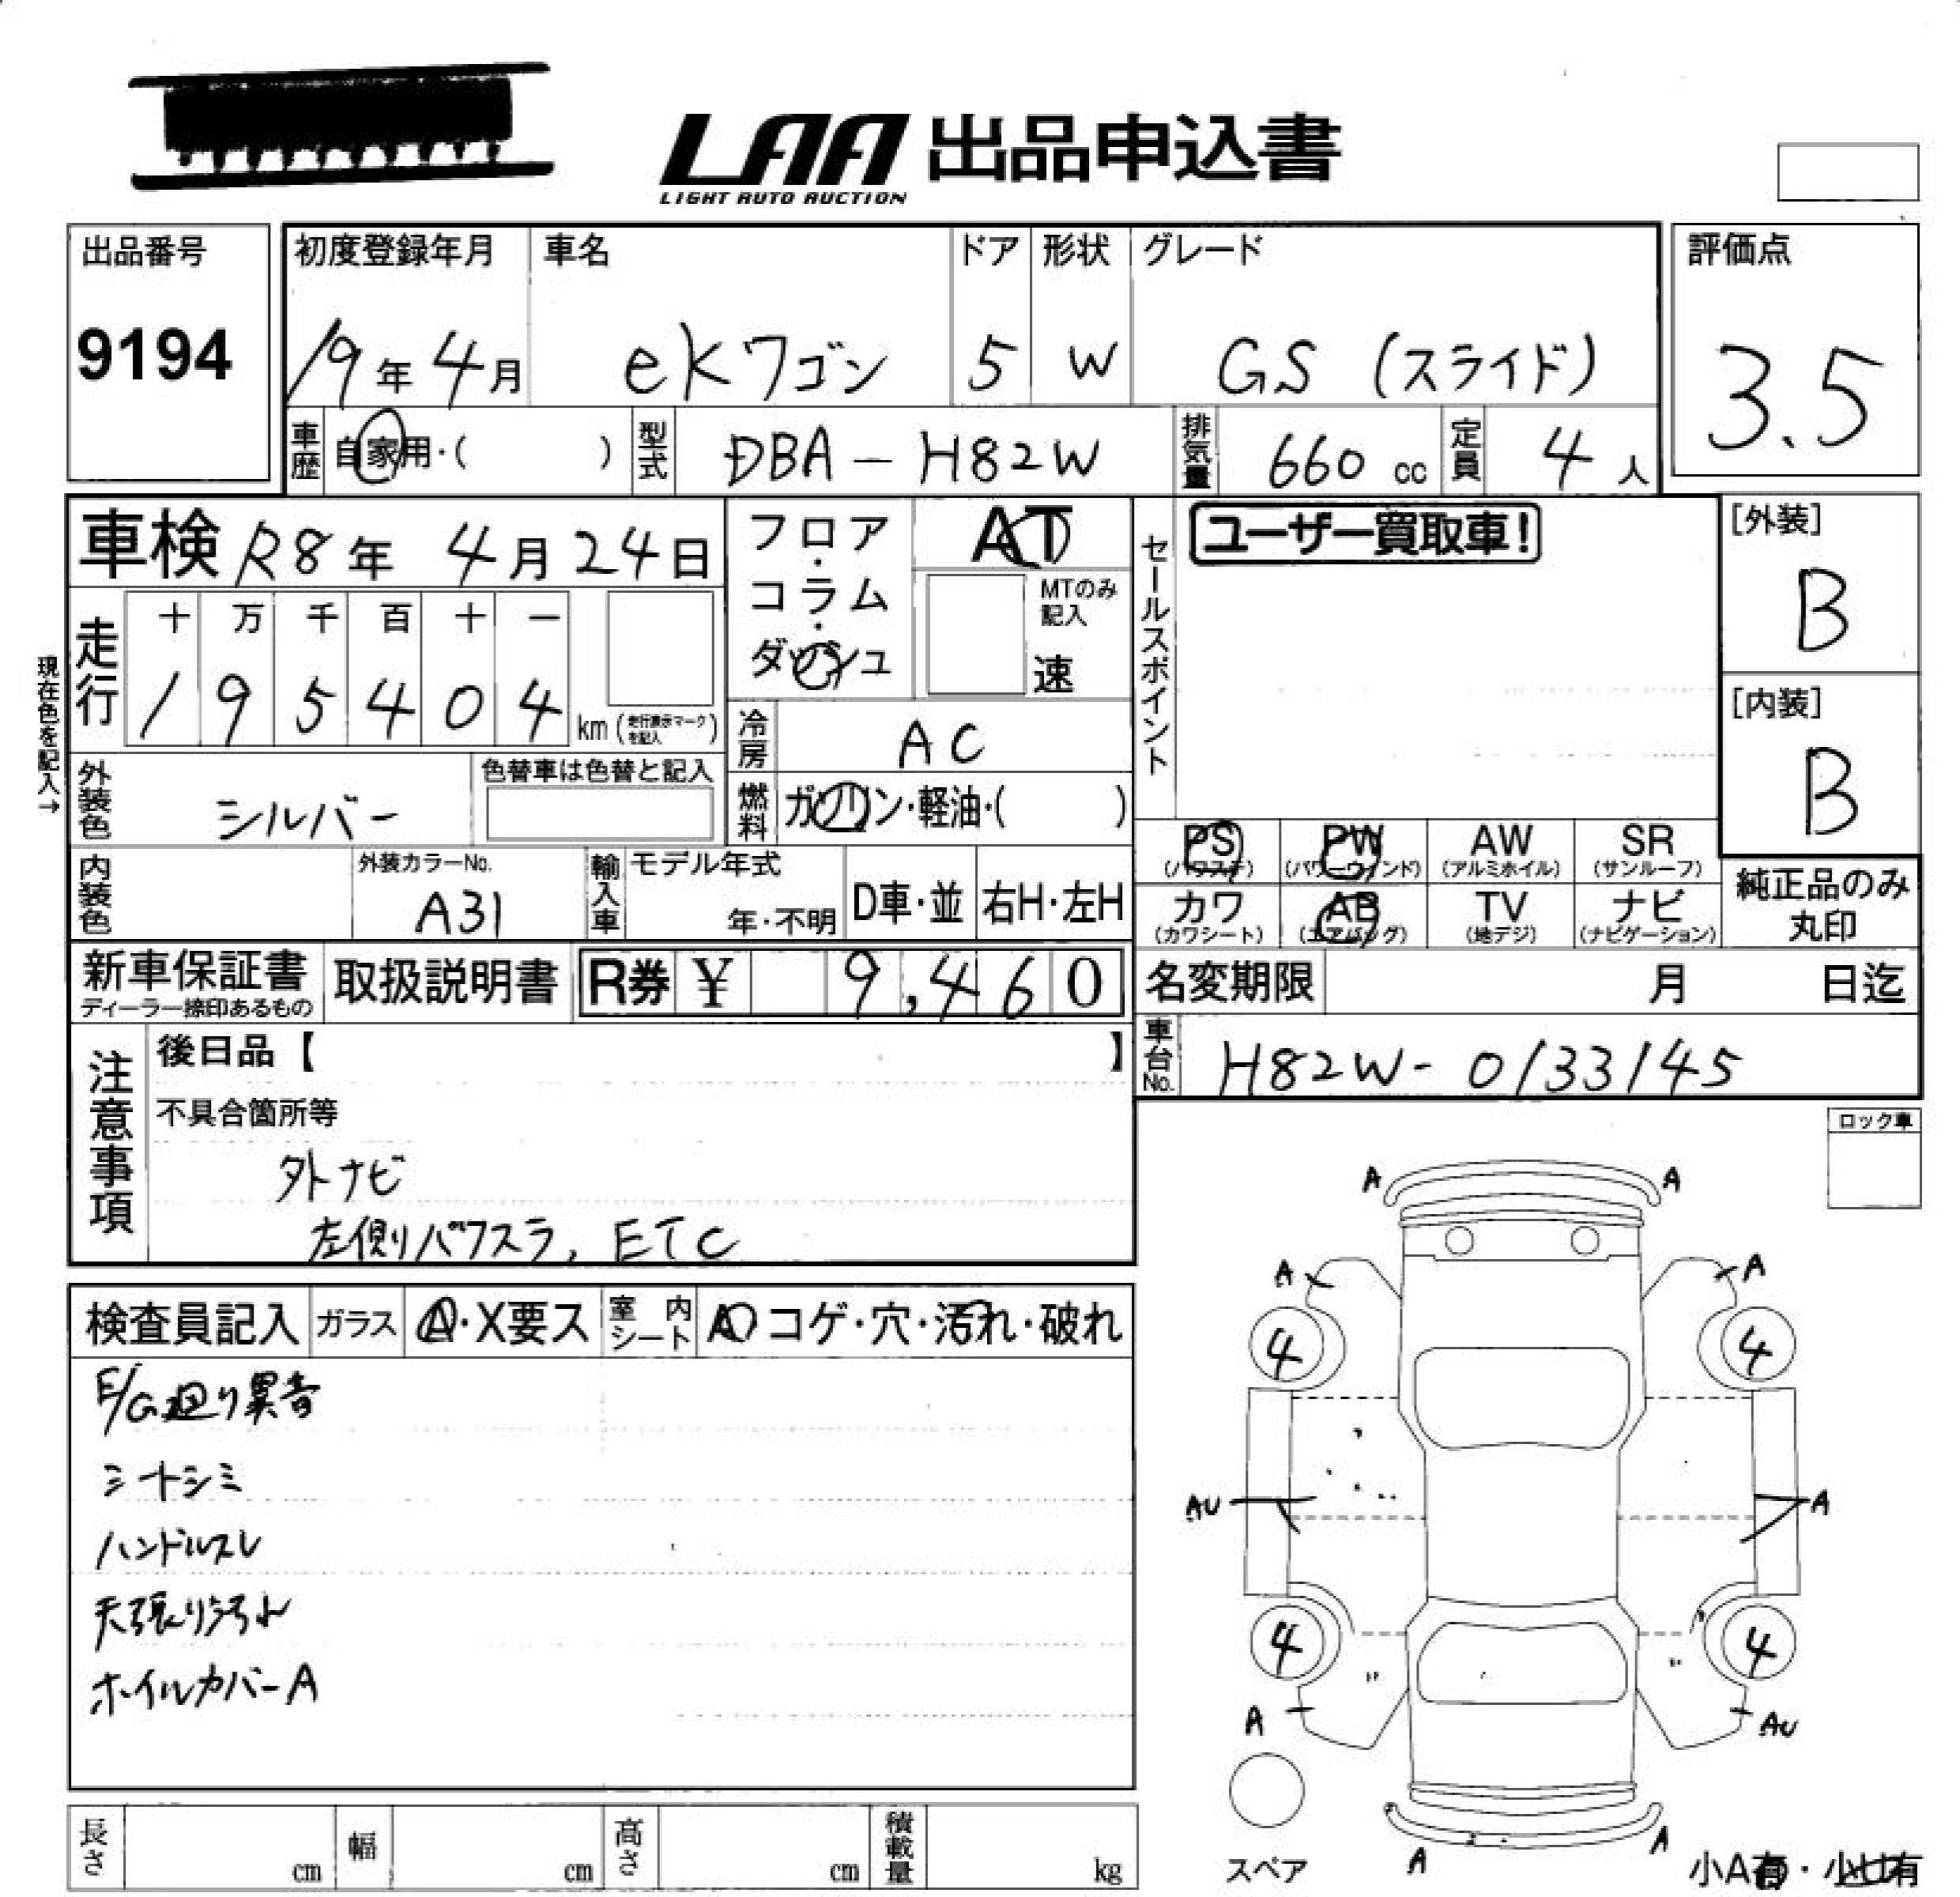 LAA 出品申込書
LIGHT AUTO AUCTION
出品番号
9194
初度登録年月
19年 4月
車名
eKワゴン
ドア
5
形状
W
グレード
GS (スライド)
評価点
3.5
車歴
自家用・( )
型式
DBA-H82W
排気量
660 cc
定員
4 人
車検 R8年 4月24日
フロア・コラム・ダッシュ
AT
MTのみ記入
速
走行
十 万 千 百 十 一
1 9 5 4 0 4 km (走行表示マークを記入)
現在色を記入→
冷房
AC
外装色
シルバー
色替車は色替と記入
燃料
ガソリン・軽油・( )
内装色
外装カラーNo.
A31
輸入車
モデル年式
年・不明
D車・並
右H・左H
セールスポイント
ユーザー買取車!
[外装]
B
[内装]
B
PS (パワステ)
PW (パワーウィンド)
AW (アルミホイル)
SR (サンルーフ)
カワ (カワシート)
AB (エアバッグ)
TV (地デジ)
ナビ (ナビゲーション)
純正品のみ丸印
新車保証書
ディーラー捺印あるもの
取扱説明書
R券 ¥ 9,460
名変期限 月 日迄
車台No.
H82W-0133145
注意事項
後日品【 】
不具合箇所等
外ナビ
左側リパワスラ, ETC
ロック車
検査員記入
ガラス
A・X要ス
室内シート
A コゲ・穴・汚れ・破れ
E/G廻り異音
シートシミ
ハンドルスレ
天張り汚れ
ホイルカバーA
A A
A A
4 4
AU A
4 4
A AU
スペア
A A
小A有・小凹有
長さ cm
幅 cm
高さ cm
積載量 kg